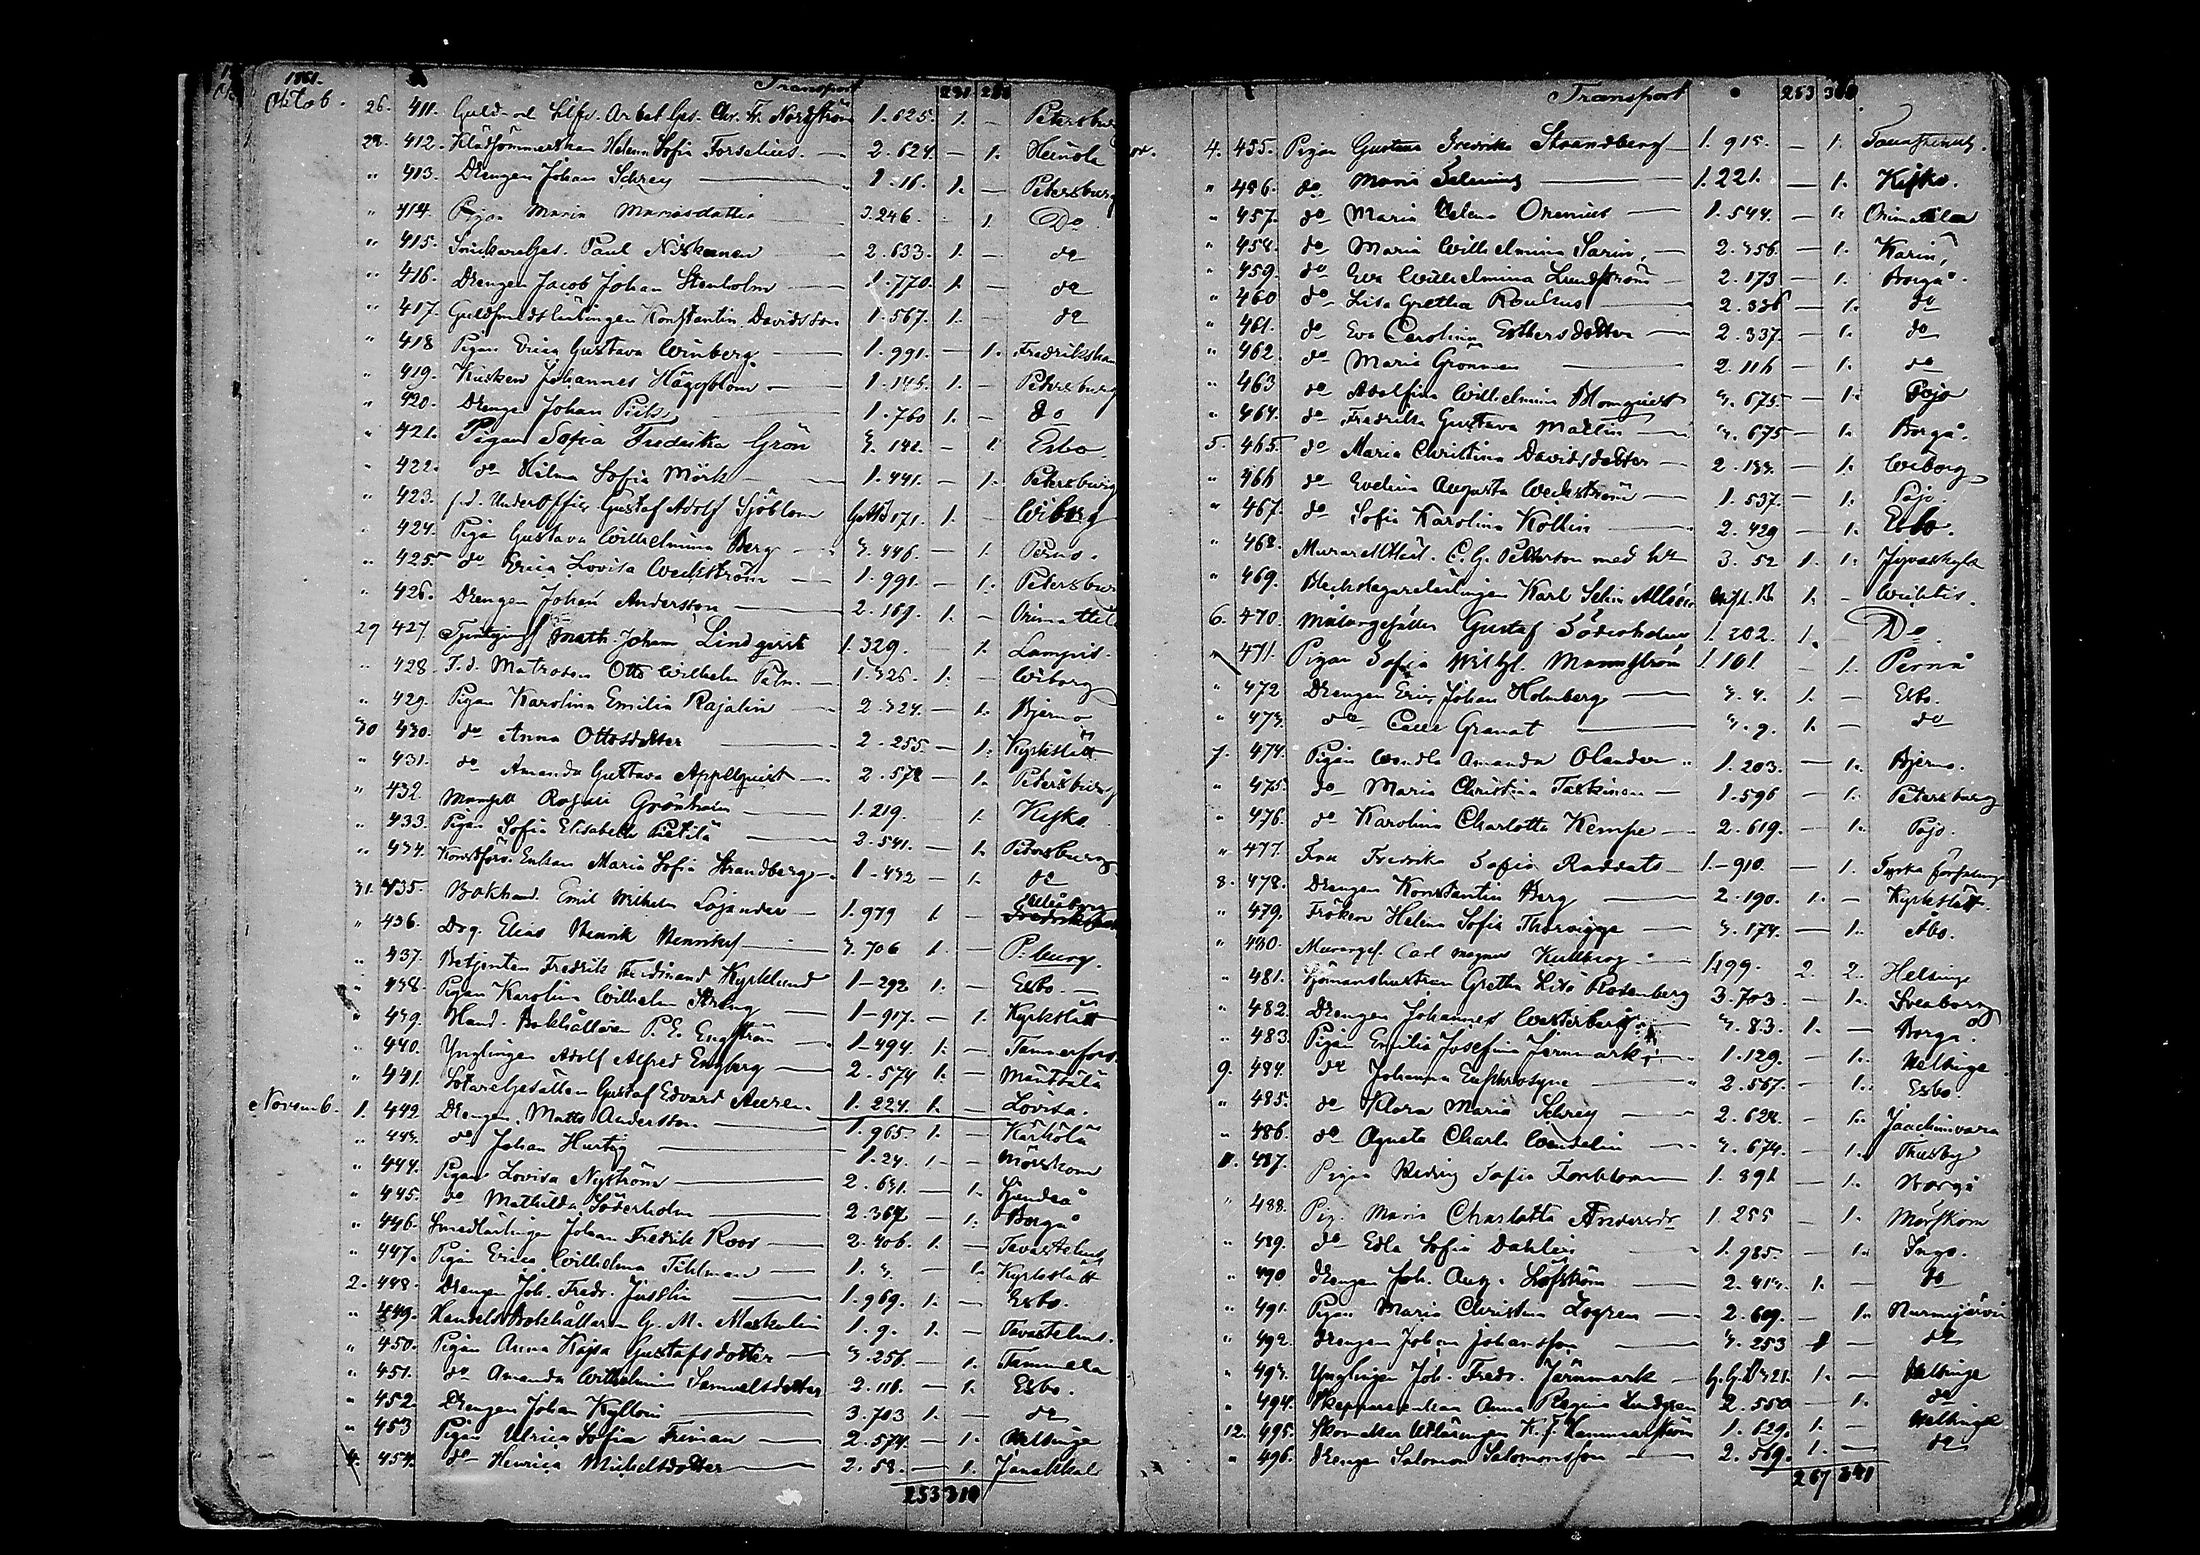 1861. Transport 231 2
Oktob. 26. 411. Guld- och Silfv. Arbet. Ges. Chr. Fr. Nordström 1. 625. 1. — Petersbur
28. 412. Klädsömmerskan Helena Sofia Forselius. — 2. 624. — 1. Heinola
" 413. Drengen Johan Schrey — 1. 11. 1. — Petersburg
" 414. Pigan Maria Mariasdotter 3. 246. 1. Do
" 415. SnickareGes. Paul Niskanen 2. 633. 1. — do
" 416. Drengen Jacob Johan Stenholm — 1. 770. 1. — do
" 417. Guldsmedslärlingen Konstantin Davidsson 1. 567. 1. — do
" 418 Pigan Erica Gustava Winberg — 1. 991. — 1. Fredriksham
" 419. Kusken Johannes Häggblom — 1. 146. 1. — Petersburg
" 420. Drenge Johan Piik 1. 760 1. — Do
" 421. Pigan Sofia Fredrika Grön 3. 142. — 1. Esbo
" 422. do Hilma Sofia Mörk — 1. 441. — 1. Petersburg
" 423. f.d. UnderOfficer Gustaf Adolf Sjöblom 171. 1. — Wiborg
" 424. Pigan Gustava Wilhelmina Berg — 3. 446. — 1. Perno.
" 425. do Erica Lovisa Weckström — 1. 991. — 1. Petersbur
" 426. Drengen Johan Andersson — 2. 167. 1. — Orimattil
29 427. Johan Lindqvist 1. 329. — 1. Lampis.
" 428. F.d. Matrosen Otto Wilhelm Palm. — 1. 326. 1. — Wiborg
" 429. Pigan Karolina Emilia Rajalin — 2. 324. — 1. Bjerno
30 430. do Anna Ottosdotter — 2. 255. — 1. Kyrkslätt
" 431. do Amanda Gustava Appelqvist — 2. 578 — 1. Petersburg
" 432. Mamsell Rosalie Grönholm — 1. 219. 1. Kisko.
" 433. Pigan Sofia Elisabeth Pietilä — 2. 541. — 1. Petersburg
" 434. Enkan Maria Sofia Strandberg — 1. 432 — 1. do
31. 435. Bokhand. Emil Wilhelm Lojander — 1. 979 1. — Uleåborg
" 436. Drg. Elias Henrik Henriks — 3. 706 1. — P:burg.
" 437. Betjenten Fredrik Ferdinand Kyrklund 1 — 292 1. — Esbo. —
" 438. Pigan Karolina Wilhelm. Streng — 1 — 917. — 1. Kyrkslätt
" 439. Hand. Bokhållaren P. E. Engström — 1 — 494. 1. — Tammerfors.
" 440. Ynglingen Adolf Alfred Engberg — 2. 574 1. — Mäntsälä
" 441. SotareGesällen Gustaf Edvard Auren. 1. 224. 1. — Lovisa.
Novemb. 1. 442. Drengen Matts Andersson — 1. 965. 1. — Kärkölä
" 443. do Johan Hurtig — 1. 24. 1. — Mörskom
" 444. Pigan Lovisa Nyström — 2. 631. — 1. Sjundeå
" 445. do Mathilda Söderholm — 2. 367 — 1. Borgå
" 446. Smedlärlingen Johan Fredrik Roos — 2. 406. 1. — Tavastehus
" 447. Pigan Erica Wilhelmina Tihlman — 1. 3. — 1. Kyrkslätt
2. 448. Drengen Joh. Fredr. Jusslin — 1. 969. 1. — Esbo.
" 449. HandelsBokhållaren G. M. Maskulin 1. 9. 1. — Tavastehus.
" 450. Pigan Anna Kajsa Gustafsdotter — 3. 256. — 1. Tammela
" 451. do Amanda Wilhelmina Samuelsdotter 2. 116. — 1. Esbo.
" 452. Drengen Johan Kyllöni — 3. 703 1. — do
" 453 Pigan Ulrica Sofia Friman — 2. 574. — 1. Helsinge
4. 454. do Henrica Michelsdotter — 2. 58. — 1. Janakkal
253 310
Transport 253 310
4. 455. Pigan Gustava Fredrika Strandberg — 1. 915. — 1. Tavastehus.
" 456. do Maria Selenius — 1. 221. — 1. Kisko.
" 457. do Maria Helena Orenius — 1. 544. — 1. Orimattila
" 458. do Maria Wilhelmina Sarin, — 2. 356. — 1. Karis,
" 459. do Eva Wilhelmina Lundström — 2. 173 — 1. Borgå.
" 460 do Lisa Gretha Roukus — 2. 336 — 1. do
" 461. do Eva Carolina Esthersdotter — 2. 337. — 1. do
" 462. do Maria Grönman — 2. 116 — 1. do
" 463 do Adolfina Wilhelmina Blomqvist 3. 675. — 1. Pojo
" 464. do Fredrika Gustava Mallin — 3. 675 — 1. Borgå.
5. 465. do Maria Christina Davidsdotter — 2. 133. — 1. Wiborg
" 466 do Evelina Augusta Weckström — 1. 537. — 1. Pojo.
" 467. do Sofia Karolina Kollin — 2. 429 — 1. Esbo.
" 468. C. G. Petterson med h 3. 52 1. 1. Jyväskylä
" 469. Bleckslagarelärlingen Karl 1. — Wichtis.
6. 470. Målaregesällen Gustaf Söderholm 1. 202. 1. — Do
" 471. Pigan Sofia Wilhl. Mannström 1. 161. — 1. Pernå
" 472 Drengen Eric Johan Holmberg — 3. 4. 1. — Esbo.
" 473. do Calle Granat — 3. 9. 1. — do
7. 474. Pigan Wendla Amanda Olander " 1. 203. — 1. Bjerno.
" 475. do Maria Christina Taskinen — 1. 596 — 1. Petersburg
" 476. do Karolina Charlotta Kempe — 2. 619. — 1. Pojo.
" 477. Fru Fredrika Sofia Raddatz — 1. — 910. — 1. Tyska församl
8. 478. Drengen Konstantin Berg — 2. 190. 1. — Kyrkslätt.
" 479. Fröken Helena Sofia Thorvigge — 3. 174. — 1. Åbo.
" 480. Murargs. Carl Magnus Kullberg — 1. 199. 2. 2. Helsinge
" 481. Sjömanshustrun Gretha Lisa Rosenberg 3. 703. — 1. Sveaborg
" 482. Drengen Johannes Westerberg — 3. 83. 1. — Borgå.
" 483. Pigan Emilia Josefina Jernmark — 1. 129. — 1. Helsinge
9. 484. do Johanna Eufrosyne — 2. 557. — 1. Esbo.
" 485. do Klara Maria Schrey — 2. 628. — 1. Jaachimvara
" 486. do Agneta Charl. Wendelin — 3. 674. — 1. Thusby
11. 487. Pigan Hedvig Sofia Forsblom — 1. 391 — 1. Borgå
" 488. Pig. Maria Charlotta Andersdr 1. 255 — 1. Mörskom
" 489. do Edla Sofia Dahlin — 1. 985. — 1. Ingo.
" 490 Drengen Joh. Aug. Löfström — 2. 414. 1. — do
" 491. Pigan Maria Christina Logren — 2. 609. — 1. Nurmijärvi
" 492. Drengen Johan Johansson — 3. 253 1 — do
" 493. Ynglingen Joh. Fredr. Jernmark — 321. 1. — Helsinge
" 494. Skepparenkan Anna Regina Lindgren 2. 550 — 1. do
12. 495. Skomakare K. F. Hammarström 1. 629. 1. — Helsinge
" 496. Drengen Salomon Salomonsson — 2. 569. 1. — do
267 341